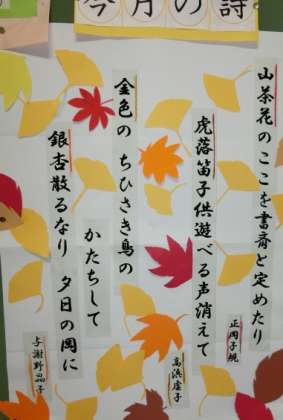 今月の詩
山茶花のここを書斎と定めたり
正岡子規
虎落笛子供遊べる声消えて
高浜虚子
金色の ちひさき鳥の
かたちして
銀杏散るなり 夕日の岡に
与謝野晶子